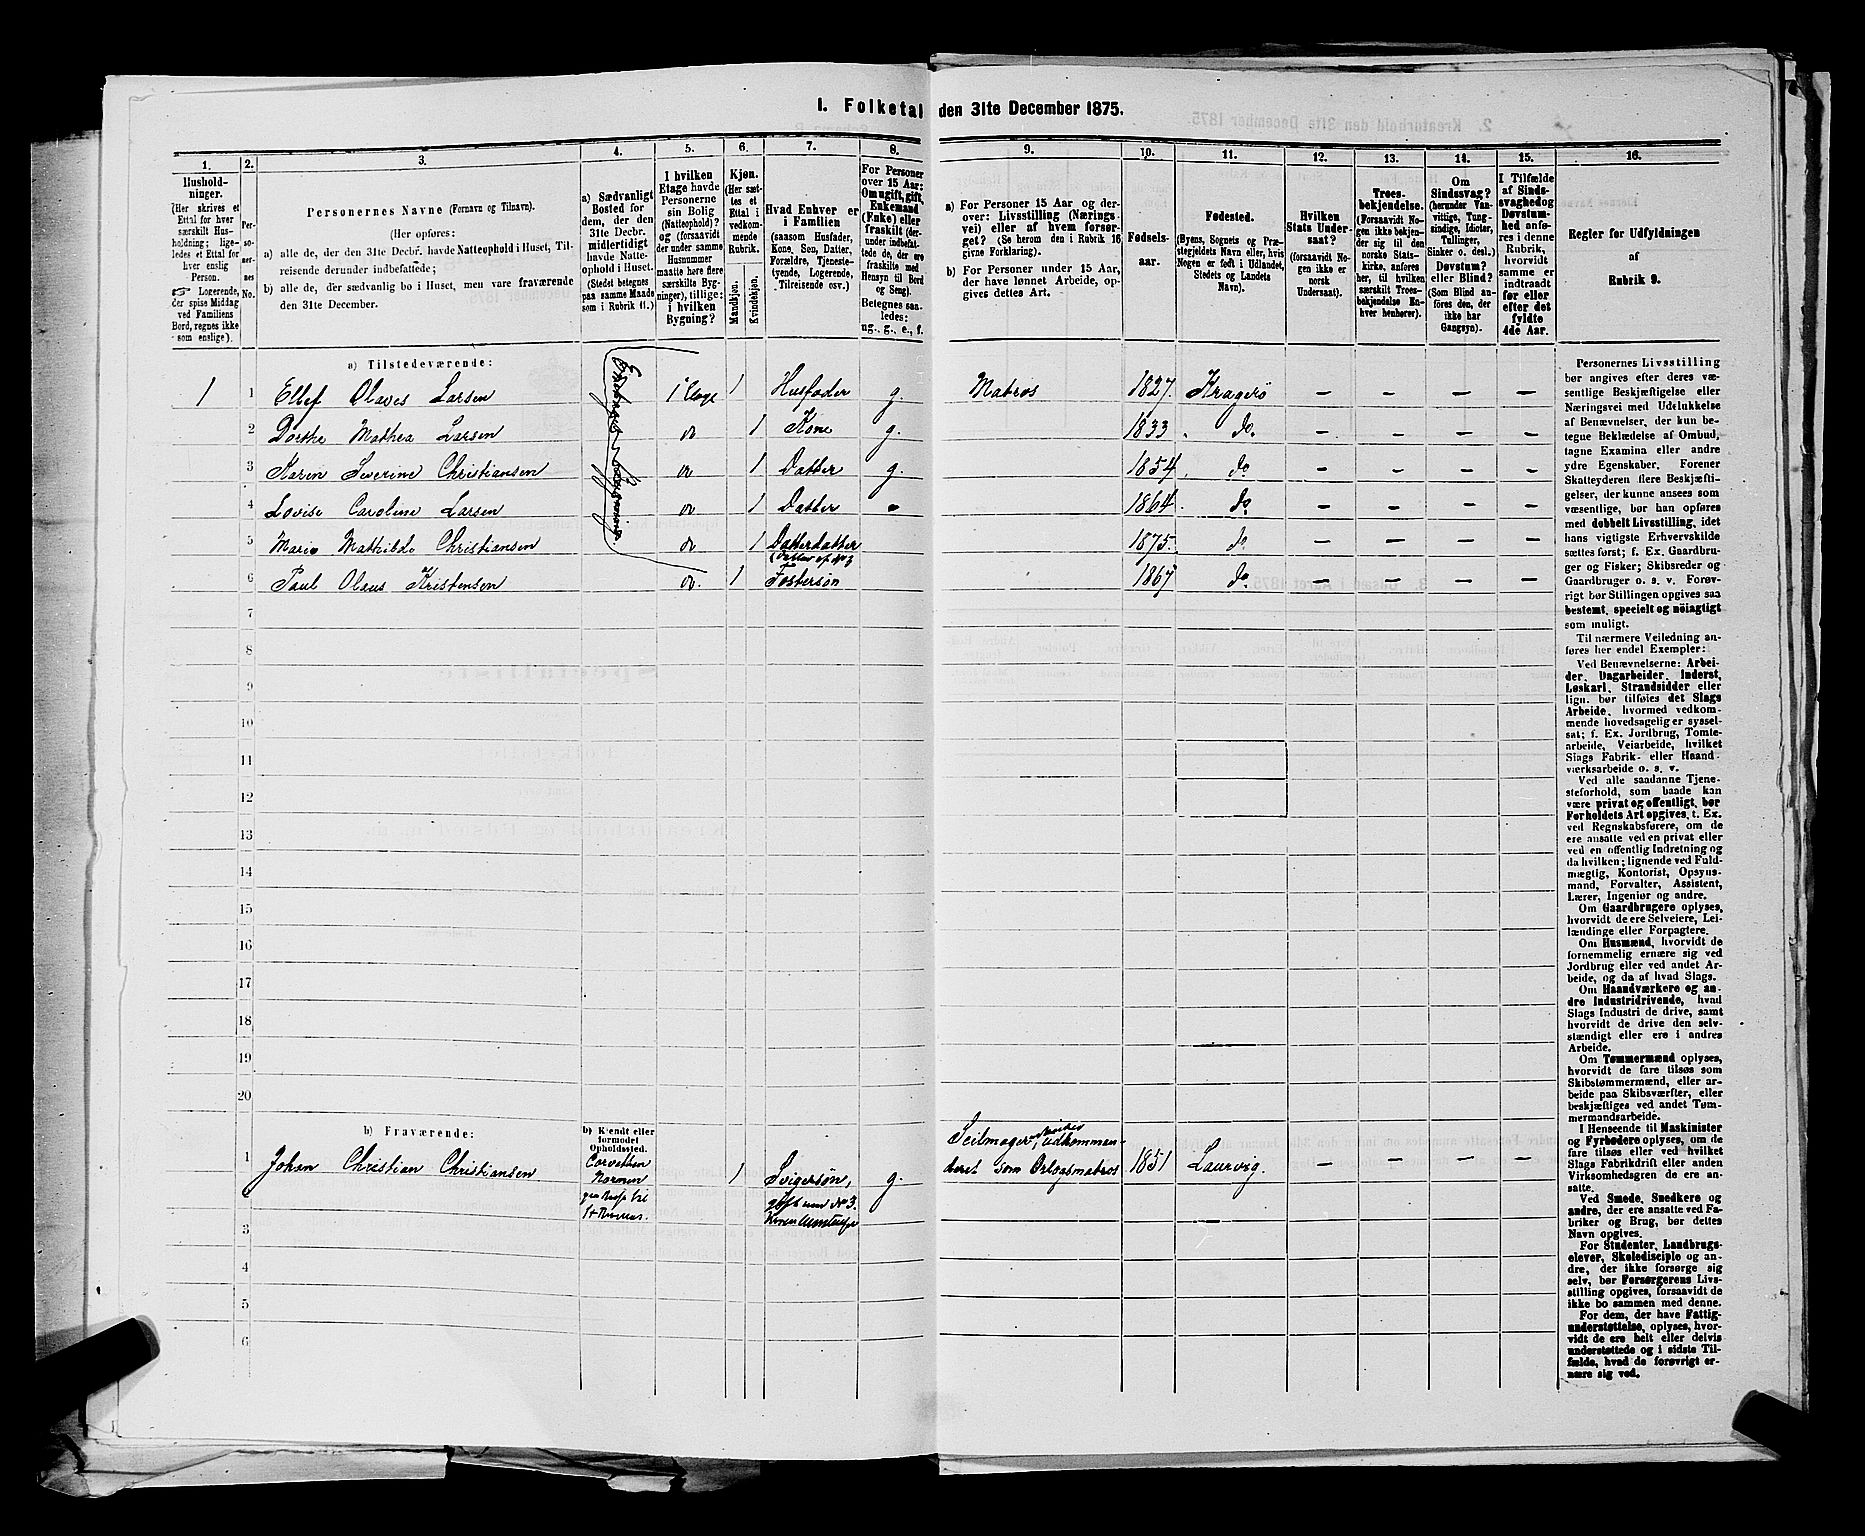 1. Folketal den 31te December 1875.
1. 2. 3. 4. 5. 6. 7. 8. 9. 10. 11. 12. 13. 14. 15. 16.
Hushold-
ninger.
(Her skrives et
Ettal for hver
særskilt Hus-
holdning; lige-
ledes et Ettal for
hver enslig
Person.
☞ Logerende,
der spise Middag
ved Familiens
Bord, regnes ikke
som enslige).
Per-
so-
ner-
nes
No.
Personernes Navne (Fornavn og Tilnavn).
(Her opføres:
a) alle de, der den 31te Decbr. havde Natteophold i Huset, Til-
reisende derunder indbefattede;
b) alle de, der sædvanlig bo i Huset, men vare fraværende
den 31te December.
a) Sædvanligt
Bosted for
dem, der den
31te Decbr.
midlertidigt
havde Natte-
ophold i Huset.
(Stedet betegnes
paa samme Maade
som i Rubrik 11.)
I hvilken
Etage havde
Personerne
sin Bolig
(Natteophold)?
og (forsaavidt
der under samme
Husnummer
maatte høre flere
særskilte Byg-
ninger), tillige:
i hvilken
Bygning?
Kjøn.
(Her sæt-
tes et
Ettal i
vedkom-
mende
Rubrik.
Mandkjøn.
Kvindekjøn.
Hvad Enhver er
i Familien
(saasom Husfader,
Kone, Søn, Datter,
Forældre, Tjeneste-
tyende, Logerende,
Tilreisende osv.)
For Personer
over 15 Aar:
Om ugift, gift,
Enkemand
(Enke) eller
fraskilt (der-
under indbefat-
tede de, der ere
fraskilte med
Hensyn til Bord
og Seng).
Betegnes saa-
ledes:
ug., g., e., f.
a) For Personer 15 Aar og der-
over: Livsstilling (Nærings-
vei) eller af hvem forsør-
get? (Se herom den i Rubrik 16
givne Forklaring).
b) For Personer under 15 Aar,
der have lønnet Arbeide, op-
gives dettes Art.
Fødsels-
aar.
Fødested.
(Byens, Sognets og Præ-
stegjeldets Navn eller, hvis
Nogen er født i Udlandet,
Stedets og Landets
Navn).
Hvilken
Stats Under-
saat?
(forsaavidt No-
gen ikke er
norsk
Undersaat).
Troes-
bekjendelse.
(Forsaavidt No-
gen ikke bekjen-
der sig til den
norske Stats-
kirke, anføres
her, til hvilken
særskilt Troes-
bekjendelse En-
hver henhører).
Om
Sindssvag?
(herunder Van-
vittige, Tung-
sindige, Idioter,
Tullinger,
Sinker o. desl.)
Døvstum?
eller Blind?
(Som Blind an-
føres den, der
ikke har
Gangsyn).
I Tilfælde
af Sinds-
svaghed og
Døvstum-
hed anfø-
res i denne
Rubrik,
hvorvidt
samme er
indtraadt
før eller
efter det
fyldte
4de Aar.
Regler for Udfyldningen
af
Rubrik 9.
a) Tilstedeværende:
1 1 Ellef Olaves Larsen 1 Etage 1 Husfader g. Matros 1827. Kragerø — — — —
2 Dorthe Mathea Larsen do 1 Kone g. 1833. do. — — — —
3 Karen Severine Christiansen do 1 Datter g. 1854. do — — — —
4 Lovise Caroline Larsen do 1 Datter 1864. do. — — — —
5 Marie Mathilde Christiansen do 1 Datterdatter 1875. do. — — — —
(Datter af No 3
6 Paul Olaus Kristensen do. 1 Fostersøn 1867 do. — — — —
7
8
9
10
11
12
13
14
15
16
17
18
19
20
b) Fraværende:
b) Kjendt eller
formodet
Opholdssted.
1 Johan Christian Christiansen Corvetten 1 Svigersøn, g. Seilmager, udkomman- 1851 Laurvig. — — — —
Nornen gift med No 3. deret som Orlogsmatros
2
3
4
5
6
Personernes Livsstilling
bør angives efter deres væ-
sentlige Beskjæftigelse eller
Næringsvei med Udelukkelse
af Benævnelser, der kun be-
tegne Beklædelse af Ombud,
tagne Examina eller andre
ydre Egenskaber. Forener
Skatteyderen flere Beskjæfti-
gelser, der kunne ansees som
væsentlige, bør han opføres
med dobbelt Livsstilling, idet
hans vigtigste Erhvervskilde
sættes først; f. Ex. Gaardbru-
ger og Fisker; Skibsreder og
Gaardbruger o. s. v. Forøv-
rigt bør Stillingen opgives saa
bestemt, specielt og nøiagtigt
som muligt.
Til nærmere Veiledning an-
føres her endel Exempler:
Ved Benævnelserne: Arbei-
der, Dagarbeider, Inderst,
Løskarl, Strandsidder eller
lign. bør tilføies det Slags
Arbeide, hvormed vedkom-
mende hovedsagelig er syssel-
sat; f. Ex. Jordbrug, Tomte-
arbeide, Veiarbeide, hvilket
Slags Fabrik- eller Haand-
værksarbeide o. s. v.
Ved alle saadanne Tjene-
steforhold, som baade kan
være privat og offentligt, bør
Forholdets Art opgives, t. Ex.
ved Regnskabsførere, om de
ere ansatte ved en privat eller
ved en offentlig Indretning og
da hvilken; lignende ved Fuld-
mægtig, Kontorist, Opsyns-
mand, Forvalter, Assistent,
Lærer, Ingeniør og andre.
Om Gaardbrugere oplyses,
hvorvidt de ere Selveiere, Lei-
lændinge eller Forpagtere.
Om Husmænd, hvorvidt de
fornemmelig ernære sig ved
Jordbrug eller ved andet Ar-
beide, og da af hvad Slags.
Om Haandværkere og an-
dre Industridrivende, hvad
Slags Industri de drive, samt
hvorvidt de drive den selv-
stændigt eller ere i andres
Arbeide.
Om Tømmermænd oplyses,
hvorvidt de fare tilsøs som
Skibstømmermænd, eller ar-
beide paa Skibsværfter, eller
beskjæftiges ved andet Tøm-
mermandsarbeide.
I Henseende til Maskinister
og Fyrbødere oplyses, om de
fare tilsøs eller ved hvilket
Slags Fabrikdrift eller anden
Virksomhedsgren de ere an-
satte.
Ved Smede, Snedkere og
andre, der ere ansatte ved Fa-
briker og Brug, bør dettes
Navn opgives.
For Studenter, Landbrugs-
elever, Skoledisciple og an-
dre, der ikke forsørge sig
selv, bør Forsørgerens Livs-
stilling opgives, forsaavidt de
ikke bo sammen med denne.
For dem, der have Fattig-
understøttelse, oplyses, hvor-
vidt de ere helt eller delvis
understøttede og i sidste Til-
fælde, hvad de forøvrigt er-
nære sig ved.